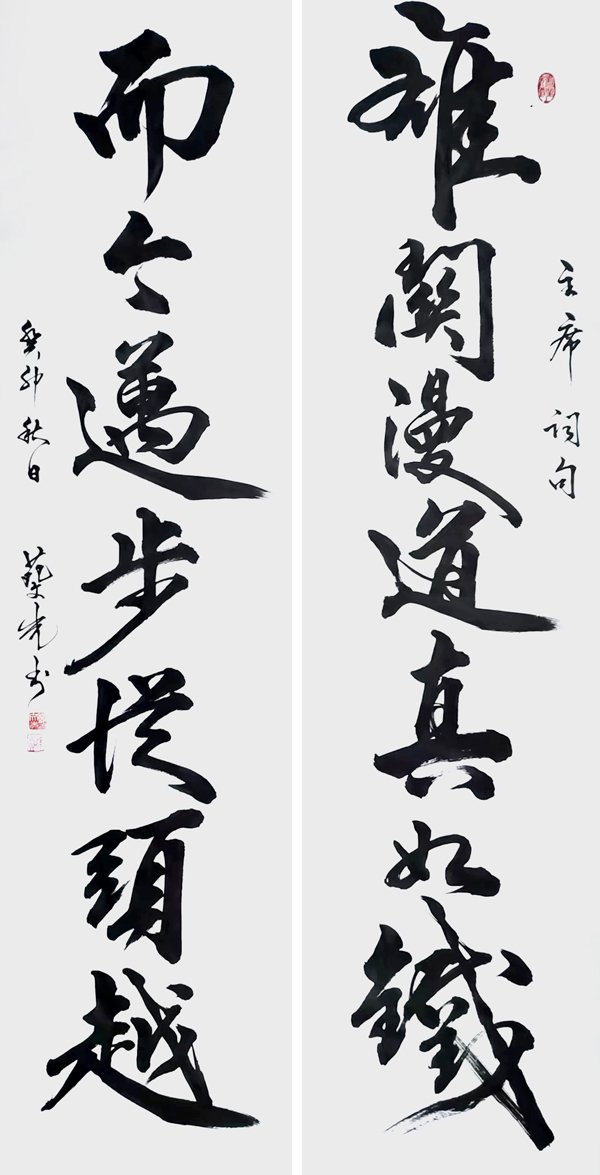 主席词句
雄關漫道真如鐵
而今邁步從頭越
癸卯秋日
藝光书